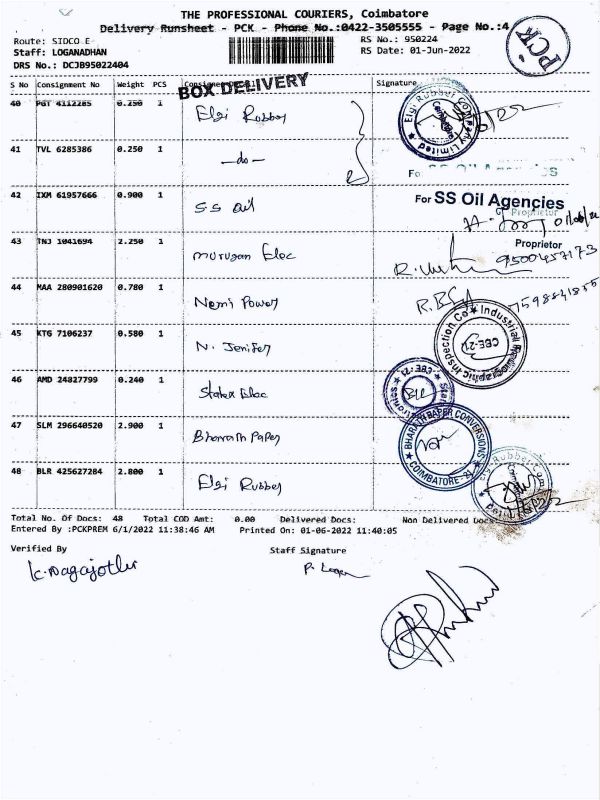 THE PROFESSIONAL COURIERS, Coimbatore
Delivery Runsheet - PCK - Phone No.:0422-3505555 - Page No.:4
PCK
Route: SIDCO E
RS No.: 950224
Staff: LOGANADHAN
RS Date: 01-Jun-2022
DRS No.: DCJB95022404
BOX DELIVERY
S No Consignment No Weight PCS Consignee Signature
40 PGT 4112265 0.250 1 Elgi Rubber
Elgi Rubber Company Limited
41 TVL 6285386 0.250 1 -do-
For SS Oil Agencies
42 IXM 61957666 0.900 1 SS Oil
For SS Oil Agencies
Proprietor
43 TNJ 1041694 2.250 1 Murugan Elec
Proprietor
9500457173
44 MAA 280901620 0.780 1 Nemi Power
45 KTG 7106237 0.580 1 N. Jenifer
Industrial Radiographic Inspection Co CBE-21
46 AMD 24827799 0.240 1 Statex Elec
CBE-21
47 SLM 296640520 2.900 1 Bharath Paper
BHARATH PAPER CONVERSIONS COIMBATORE-21
48 BLR 425627284 2.800 1 Elgi Rubber
Total No. Of Docs: 48 Total COD Amt: 0.00 Delivered Docs: Non Delivered Docs
Entered By :PCKPREM 6/1/2022 11:38:46 AM Printed On: 01-06-2022 11:40:05
Verified By Staff Signature
K. Nagajothi P. Logan